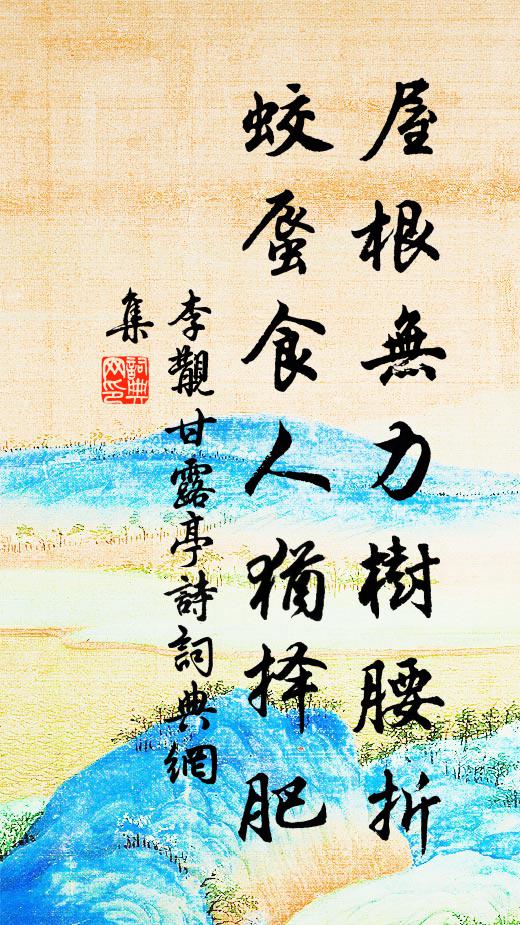 屋根無力樹腰折
蛟蜃食人猶择肥
李觀甘露亭詩詞典網
集
詞典
网印